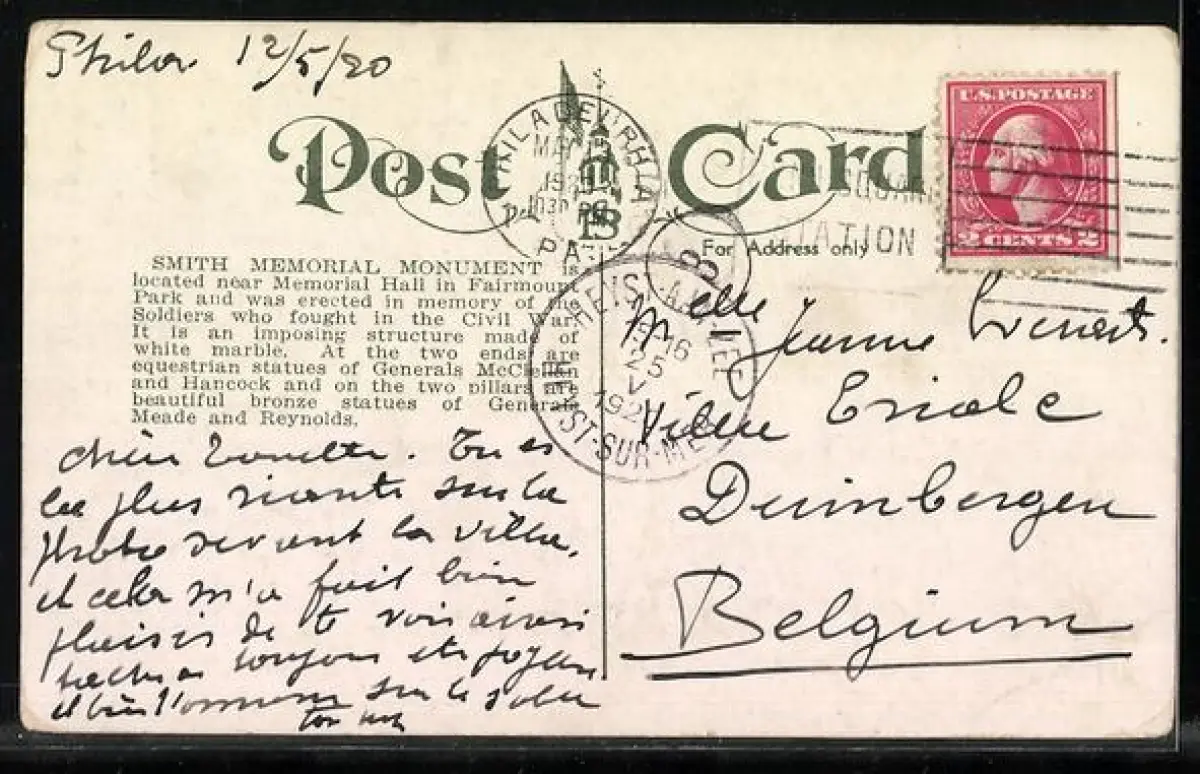 Phila. 12/5/20
Post Card
For Address only
U.S. POSTAGE
2 CENTS 2
PHILADELPHIA
PA.
MAY
13
STATION
HEIST-SUR-MER
B
25
V
SMITH MEMORIAL MONUMENT is
located near Memorial Hall in Fairmount
Park and was erected in memory of the
Soldiers who fought in the Civil War.
It is an imposing structure made of
white marble. At the two ends are
equestrian statues of Generals McClellan
and Hancock and on the two pillars are
beautiful bronze statues of Generals
Meade and Reynolds.
Tu es
la plus riante sur la
photo devant la villa,
et cela m'a fait bien
plaisir de te voir ainsi
toujours
et bien sur le sable
Melle Jeanne
Villa
Duinbergen
Belgium